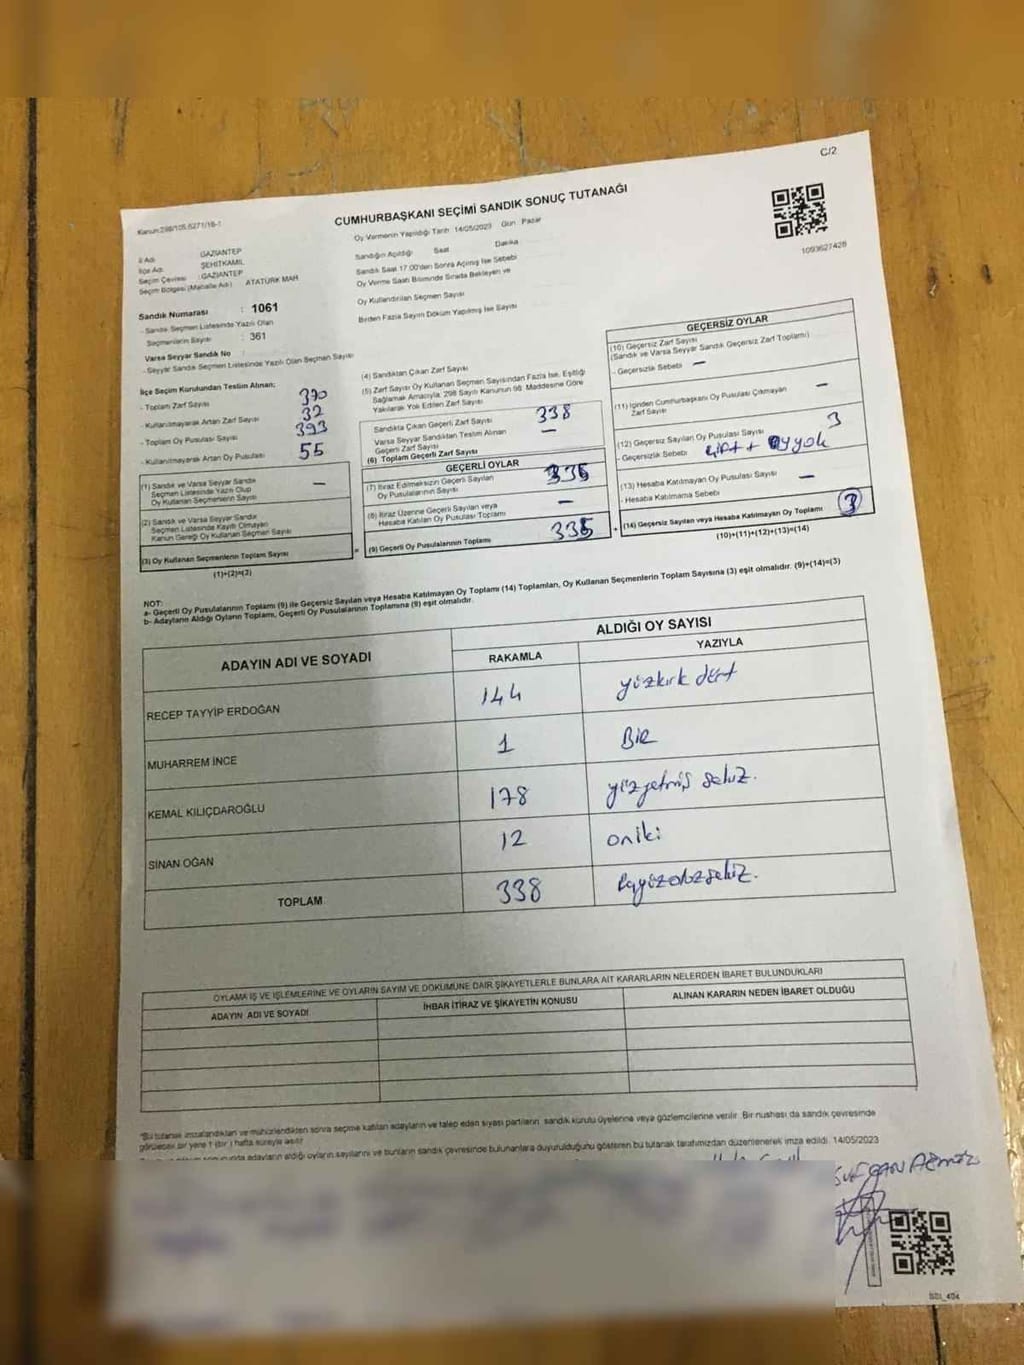 C/2
Kanun:298/105,6271/16-1
CUMHURBAŞKANI SEÇİMİ SANDIK SONUÇ TUTANAĞI
1093627428
İl Adı : GAZİANTEP
İlçe Adı : ŞEHİTKAMİL
Seçim Çevresi : GAZİANTEP
Seçim Bölgesi (Mahalle Adı) : ATATÜRK MAH
Sandık Numarası : 1061
- Sandık Seçmen Listesinde Yazılı Olan
Seçmenlerin Sayısı : 361
Varsa Seyyar Sandık No :
- Seyyar Sandık Seçmen Listesinde Yazılı Olan Seçmen Sayısı
Oy Vermenin Yapıldığı Tarih 14/05/2023 Gün : Pazar
Sandığın Açıldığı Saat Dakika
Sandık Saat 17.00'den Sonra Açılmış İse Sebebi
Oy Verme Saati Bitiminde Sırada Bekleyen ve
Oy Kullandırılan Seçmen Sayısı
Birden Fazla Sayım Döküm Yapılmış İse Sayısı
İlçe Seçim Kurulundan Teslim Alınan;
- Toplam Zarf Sayısı 370
- Kullanılmayarak Artan Zarf Sayısı 32
- Toplam Oy Pusulası Sayısı 393
- Kullanılmayarak Artan Oy Pusulası 55
(1) Sandık ve Varsa Seyyar Sandık
Seçmen Listesinde Yazılı Olup
Oy Kullanan Seçmenlerin Sayısı —
(2) Sandık ve Varsa Seyyar Sandık
Seçmen Listesinde Kayıtlı Olmayan
Kanun Gereği Oy Kullanan Seçmen Sayısı
(3) Oy Kullanan Seçmenlerin Toplam Sayısı =
(1)+(2)=(3)
(4) Sandıktan Çıkan Zarf Sayısı
(5) Zarf Sayısı Oy Kullanan Seçmen Sayısından Fazla İse, Eşitliği
Sağlamak Amacıyla, 298 Sayılı Kanunun 98. Maddesine Göre
Yakılarak Yok Edilen Zarf Sayısı
Sandıkta Çıkan Geçerli Zarf Sayısı 338
Varsa Seyyar Sandıktan Teslim Alınan
Geçerli Zarf Sayısı —
(6) Toplam Geçerli Zarf Sayısı
GEÇERLİ OYLAR
(7) İtiraz Edilmeksizin Geçerli Sayılan
Oy Pusulalarının Sayısı 335
(8) İtiraz Üzerine Geçerli Sayılan veya
Hesaba Katılan Oy Pusulası Toplamı —
(9) Geçerli Oy Pusulalarının Toplamı 335 +
GEÇERSİZ OYLAR
(10) Geçersiz Zarf Sayısı
(Sandık ve Varsa Seyyar Sandık Geçersiz Zarf Toplamı)
- Geçersizlik Sebebi —
(11) İçinden Cumhurbaşkanı Oy Pusulası Çıkmayan
Zarf Sayısı —
(12) Geçersiz Sayılan Oy Pusulası Sayısı 3
- Geçersizlik Sebebi çift + oy yok
(13) Hesaba Katılmayan Oy Pusulası Sayısı —
- Hesaba Katılmama Sebebi
(14) Geçersiz Sayılan veya Hesaba Katılmayan Oy Toplamı 3
(10)+(11)+(12)+(13)=(14)
NOT:
a- Geçerli Oy Pusulalarının Toplamı (9) ile Geçersiz Sayılan veya Hesaba Katılmayan Oy Toplamı (14) Toplamları, Oy Kullanan Seçmenlerin Toplam Sayısına (3) eşit olmalıdır. (9)+(14)=(3)
b- Adayların Aldığı Oyların Toplamı, Geçerli Oy Pusulalarının Toplamına (9) eşit olmalıdır.
ADAYIN ADI VE SOYADI ALDIĞI OY SAYISI
RAKAMLA YAZIYLA
RECEP TAYYİP ERDOĞAN 144 yüzkırk dört
MUHARREM İNCE 1 Bir
KEMAL KILIÇDAROĞLU 178 yüzyetmiş sekiz.
SİNAN OĞAN 12 oniki
TOPLAM 338 üçyüzotuzsekiz.
OYLAMA İŞ VE İŞLEMLERİNE VE OYLARIN SAYIM VE DÖKÜMÜNE DAİR ŞİKAYETLERLE BUNLARA AİT KARARLARIN NELERDEN İBARET BULUNDUKLARI
ADAYIN ADI VE SOYADI İHBAR İTİRAZ VE ŞİKAYETİN KONUSU ALINAN KARARIN NEDEN İBARET OLDUĞU
"Bu tutanak imzalandıktan ve mühürlendikten sonra seçime katılan adayların ve talep eden siyasi partilerin sandık kurulu üyelerine veya gözlemcilerine verilir. Bir nüshası da sandık çevresinde
görülecek bir yere 1 (bir) hafta süreyle asılır
adayların aldığı oyların sayılarını ve bunların sandık çevresinde bulunanlara duyurulduğunu gösteren bu tutanak tarafımızdan düzenlenerek imza edildi. 14/05/2023